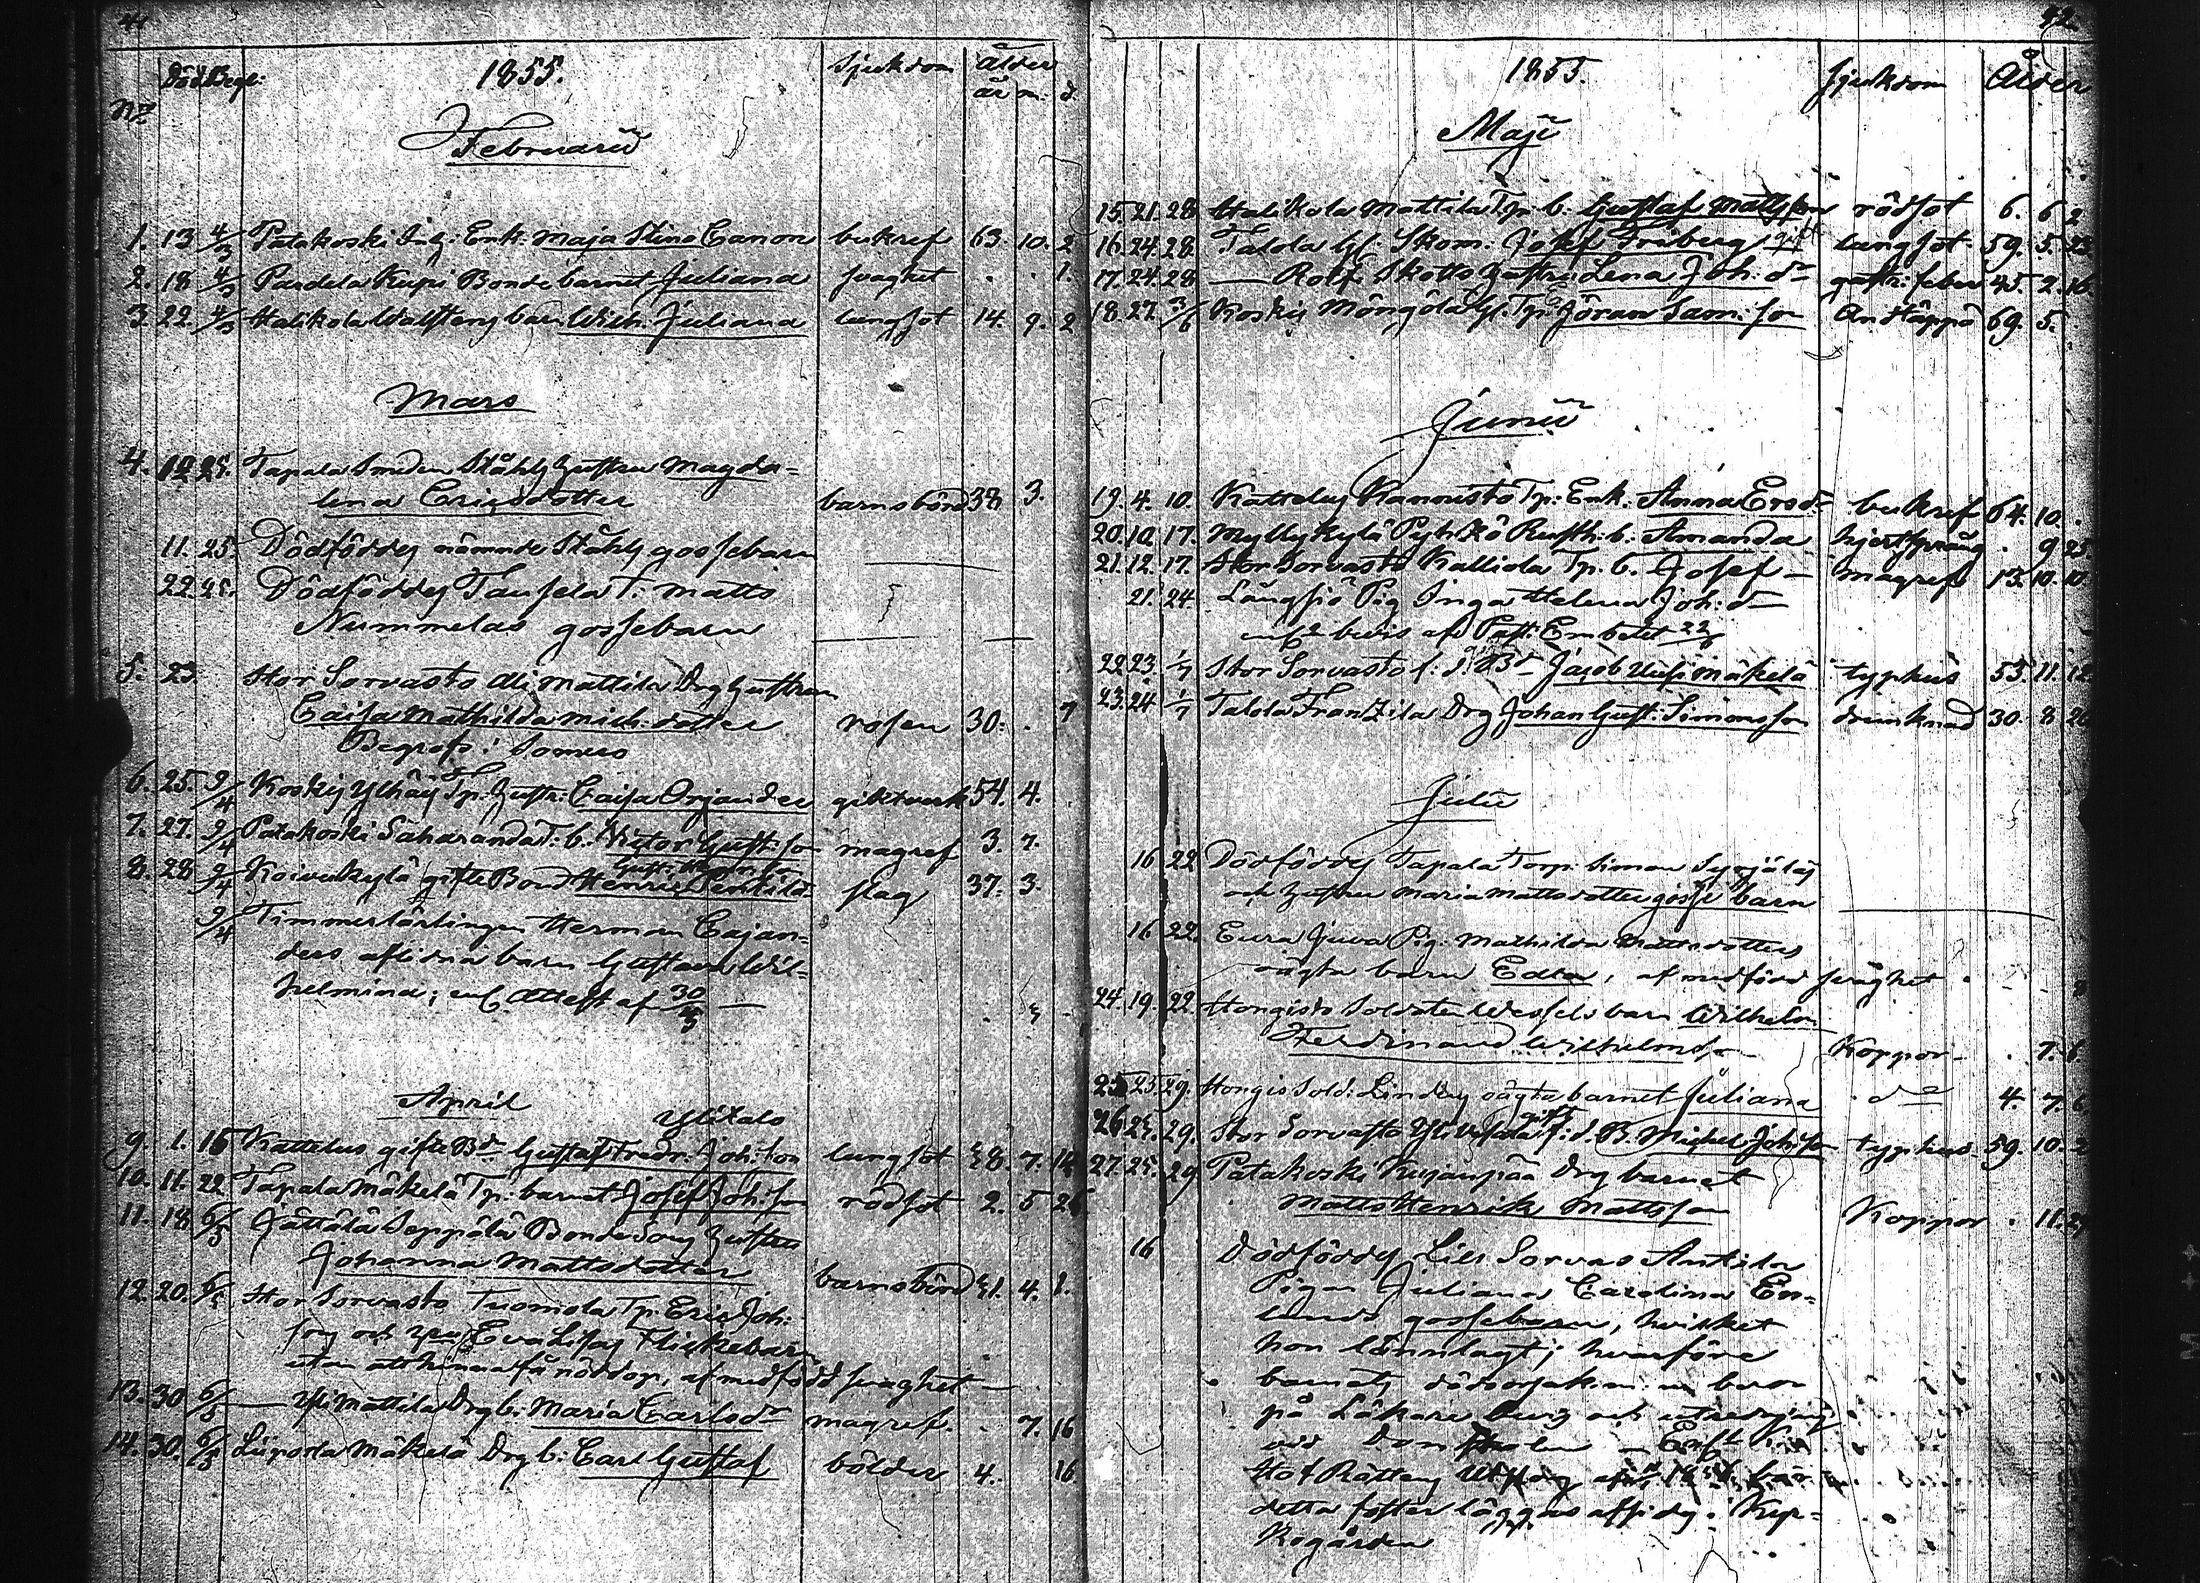 41
N:o Död Begr: 1855. Sjukdom ålder år m. d.
Februarii
1. 13 4/3 Patakoski Inh: Enk: Maja Stina Canon bukref 63. 10. 2
2. 18 4/3 Pardela Kupi Bonde barnet Juliana svaghet . . 1.
3. 22. 4/3 Halikola Wallsten barn Wilh. Juliana lungsot 14. 9. 2
Mars
4. 12 25. Tapala Smeden Ståhls hustru Magda-
lena Ericsdotter barnsbörd 38 3.
11. 25. Dödföddes nämnde Ståhls gossebarn
22 25. Dödföddes T: Matts
Nummelas gossebarn
5. 23 Stor Sorvasto Ali Mattila Drg hustrun
Caisa Mathilda Mich: dotter rosen 30. . 7
Begrofs i Somero
6. 25. 9/4 Koskis Tp: hustr: Caisa Orjander giktverk 54. 4.
7. 27. 9/4 Patakoski Saharanda T: b. Victor Gust: son magref 3. 7.
8. 28 9/4 Koivukylä gifte Bond Henric Penttilä slag 37. 3.
9/4 Timmerlärlingen Herman Cajan-
ders aflidna barn Gustava Wil-
helmina; enl. Attest af 30/3
April
Ylitalo
9. 1. 15 Kattelus gifte Bd: Gustaf Fredr. Joh: son lungsot 28. 7. 14
10. 11. 22 Tapala Mäkelä Tp: barnet Josef Joh: son rödsot 2. 5 26
11. 18 6/5 Jättälä Seppälä Bondesons hustru
Johanna Mattsdotter barnsbörd 21. 4. 1.
12. 20. 6/5 Stor Sorvasto Tuomola Tp. Eric Joh:
son och Eva Lisas Flickebarn
utan att hinna få nöddop, af medfödd svaghet
13. 30 6/5 — Yli Mattila Drg b: Maria Carlsdr magref. . 7. 16
14. 30. 6/5 Liipola Mäkelä Drg b: Carl Gustaf bölder 4. 16
42
1855. Sjukdom Ålder
Maji
15. 21. 28 Halikola Mattila Tp: b. Gustaf Mattsson rödsot 6. 6 2
16. 24. 28. Talola Skom: Josef Friberg gift lungsot 59. 5. 23
17. 24. 28 — Rolf Skotts hustr: Lena Joh: dr gastr: feber 45. 2. 16
18. 27. 3/6 Koskis Möngölä Tp: Jöran Sam: son Andtäppa 69. 5.
Junii
19. 4. 10. Kattelus Kannisto Tp: Enk: Anna Ersdr bukref 64. 10.
20. 10. 17. Myllykylä Pyhtkö Rusth: b. Amanda hjertsprång . 9 25.
21. 12. 17. Stor Sorvasto Kalliola Tp. b. Josef — magref 13. 10. 10.
21. 24. Långsjö Pig Inga Helena Joh: dr
enl. bevis af Past: Embetet 22/6
22 23. 1/7 Stor Sorvasto f: d: Bd Jacob Uusimäkelä typhus 53. 11. 12
23. 24 1/7 Talola Franzila Drg Johan Gust: Simonsson drunknad 30. 8 26
Julii
16 22 Dödföddes Tapala Torp: Simon
och hustru Maria Mattsdotters gosse barn
16 22. Eura Juva Pig: Mathilda Mattsdotters
oägta barn Edla, af medfödd svaghet . - 8
24. 19. 22 Hongisto Soldaten Wessels barn Wilhelm
Ferdinand Wilhelmsson Koppor — . 7. 6
25 25. 29. Hongis Sold: oägta barnet Juliana do 4. 7. 6.
26 25. 29. Stor Sorvasto f: d. B. Michel Joh: son typhus 59. 10. 2
27. 25. 29 Patakoski Kujanpää Drg barnet
Matts Henrik Mattsson Koppor . 11. 27
16 Dödföddes Lill Sorvas Anttila
Pigan Juliana Carolina En-
lunds gossebarn, hvilket
hon lönnlagt; hvarföre
barnets dödsorsak beror
på Läkare besg och
vid Domstolen
Hof Rättens
detta foster läggas afsides i Kyr-
kogården